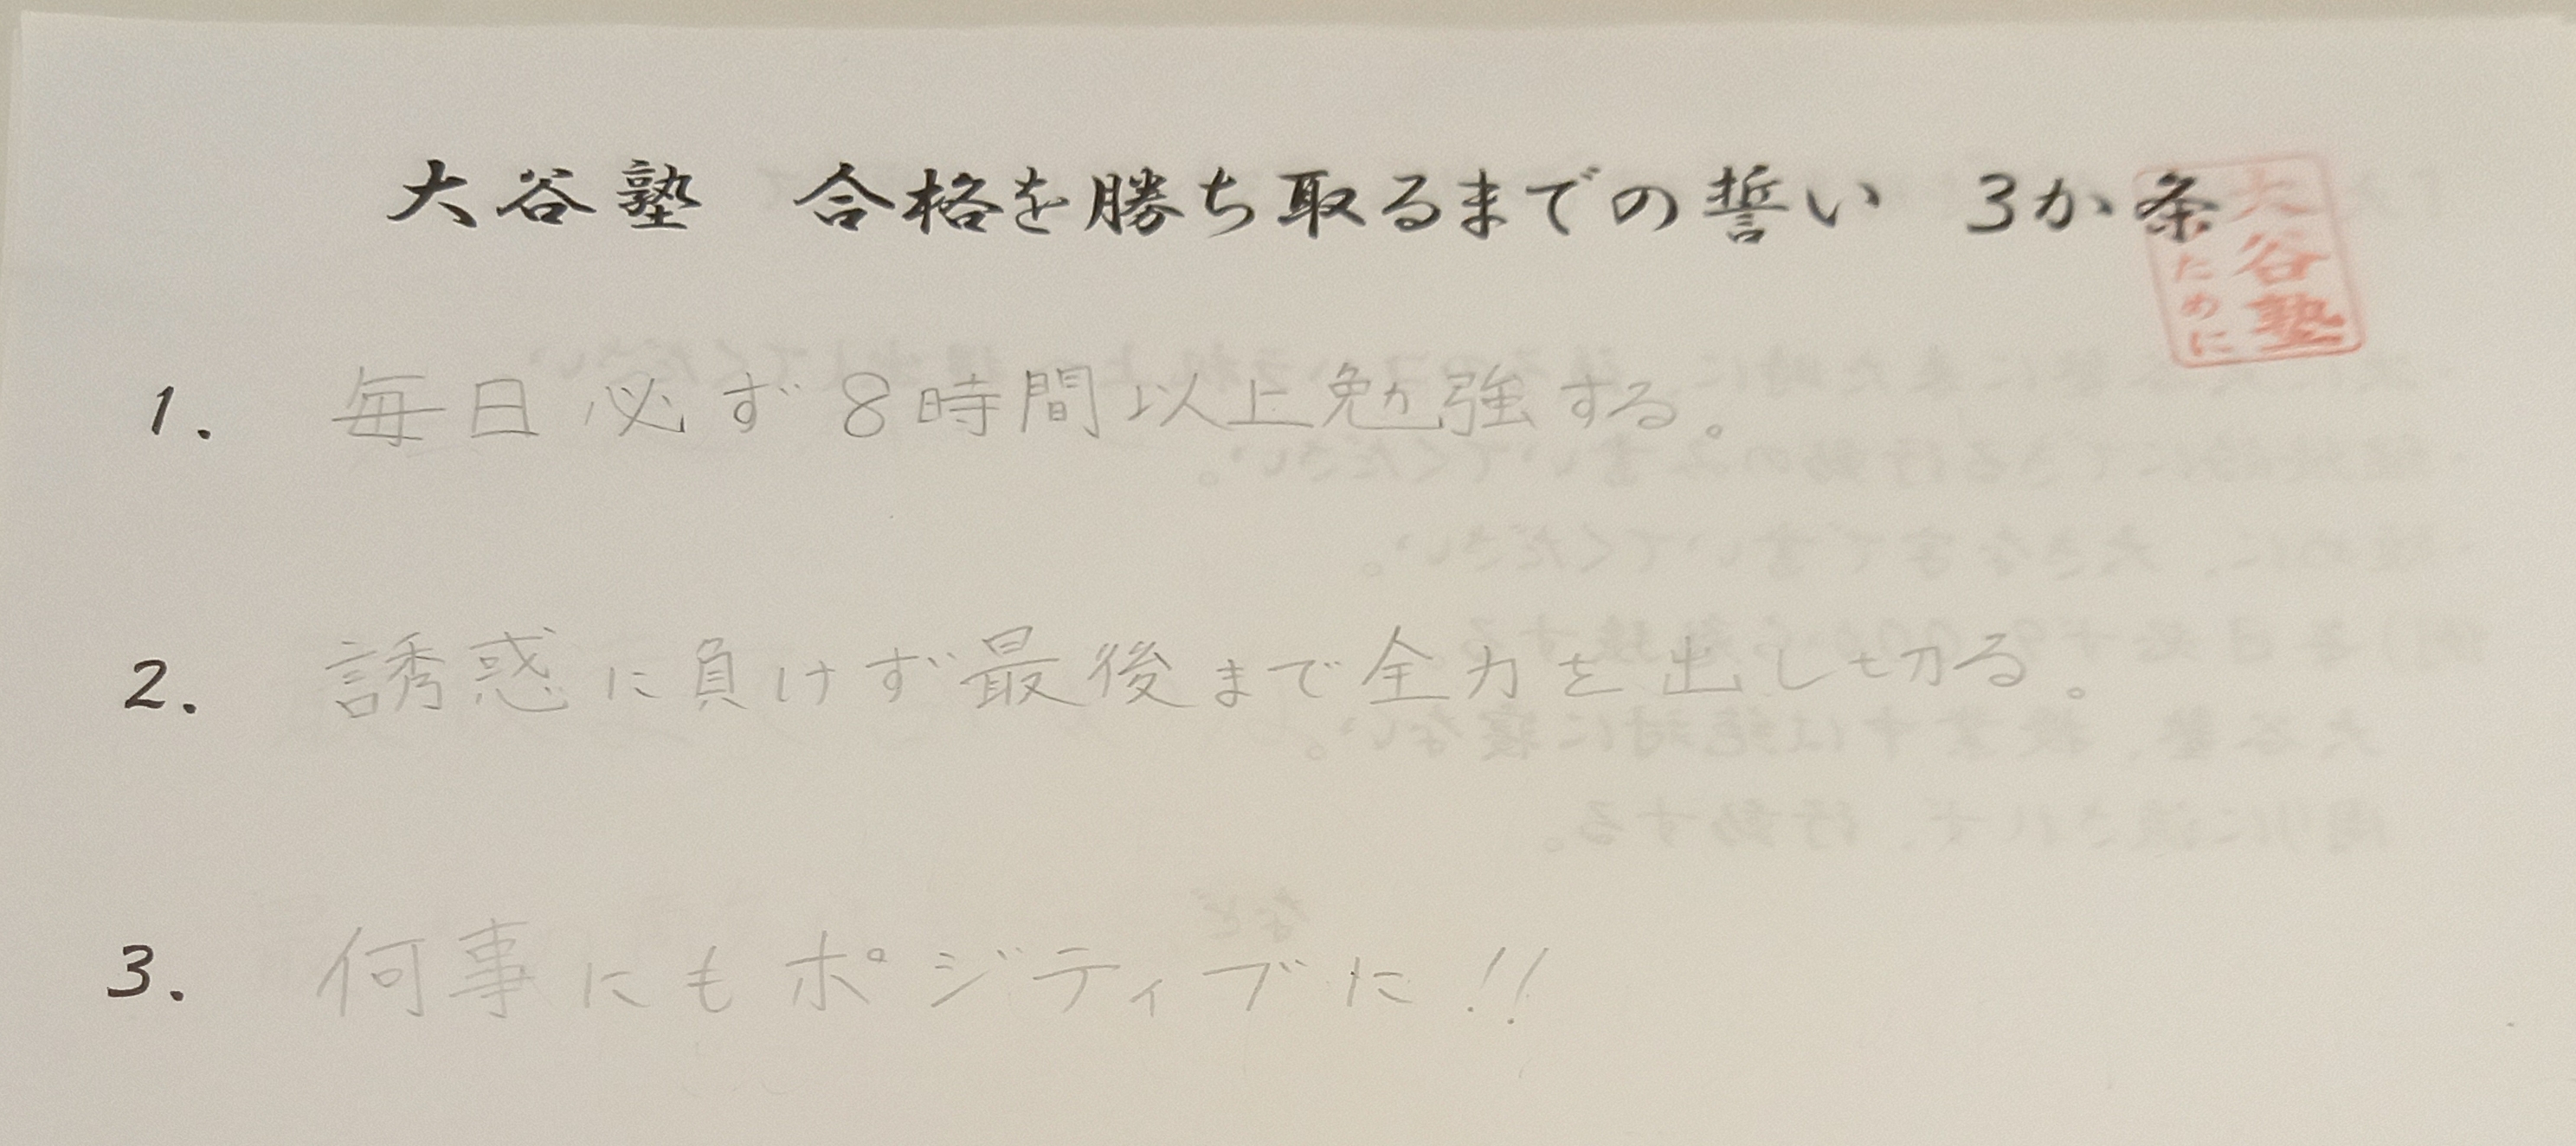 大谷塾 合格を勝ち取るまでの誓い 3か条
大谷塾
ために
1. 毎日必ず8時間以上勉強する。
2. 誘惑に負けず最後まで全力を出し切る。
3. 何事にもポジティブに!!